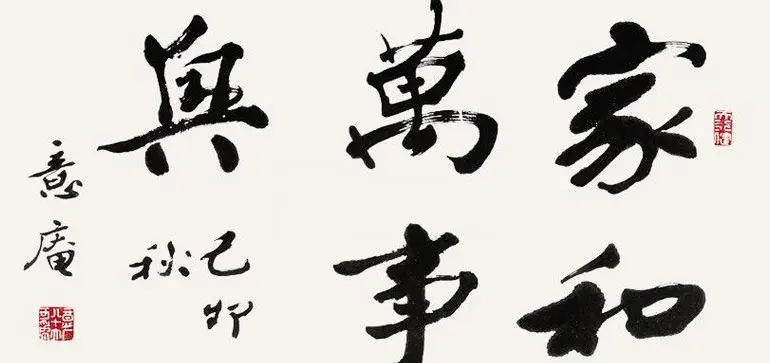 家和
萬事
興
己卯
秋
意庵